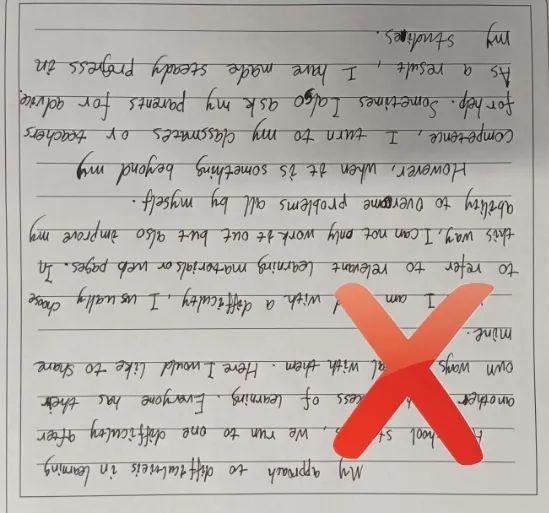 My approach to difficultieis in learning
we run to one difficulty after
another of learning. Everyone has their
own ways with them. Here I would like to share
mine.
I am with a difficulty, I usually chose
to refer to relevant learning materials or web pages. In
this way, I can not only work it out but also improve my
ability to overcome problems all by myself.
However, when it is something beyond my
competence, I turn to my classmates or teachers
for help. Sometimes I also ask my parents for advice.
As a result, I have made steady progress in
my studies.